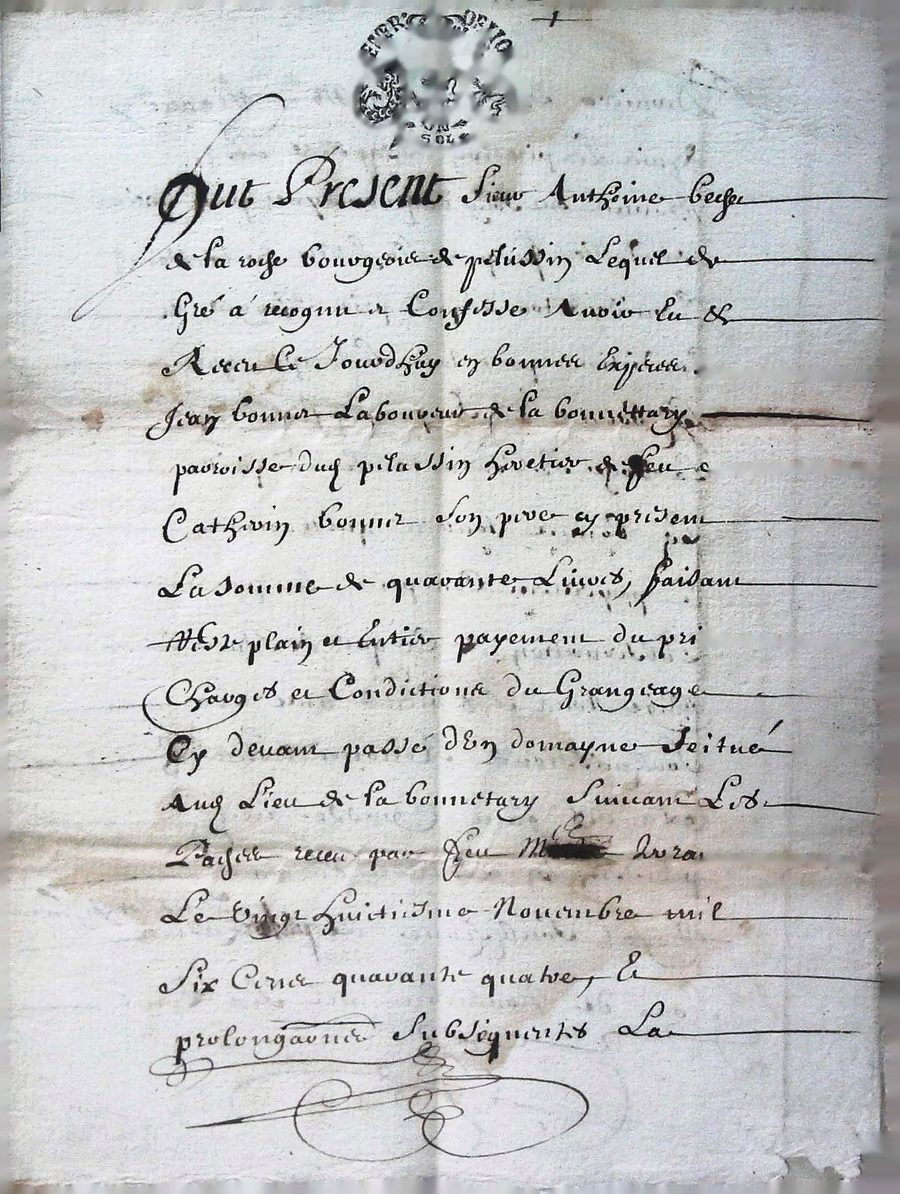 UN
SOL
Fut Présent Sieur Anthoine beche
de la roche bourgeois de pelussin Lequel de
Gré a recognu et Confesse Avoir Eu &
Receu Ce Jourdhuy en bonnes Espèces
Jean bonnet Laboureur de la bonnettary
parroisse dud pelussin heretier de feu
Catherin bonnet son pere cy présent
La somme de quarante Livres, faisant
Reste plain et Entier payement du pri
Charges et Conditions du Grangeage
Cy devant passé d'En domayne Seitué
Aud Lieu de la bonnetary Suivant Les
Paches receu par feu Me
Le Vingt huictiesme Novembre mil
Six Cents quarante quatre, Et
prolongaones Subséquentes La